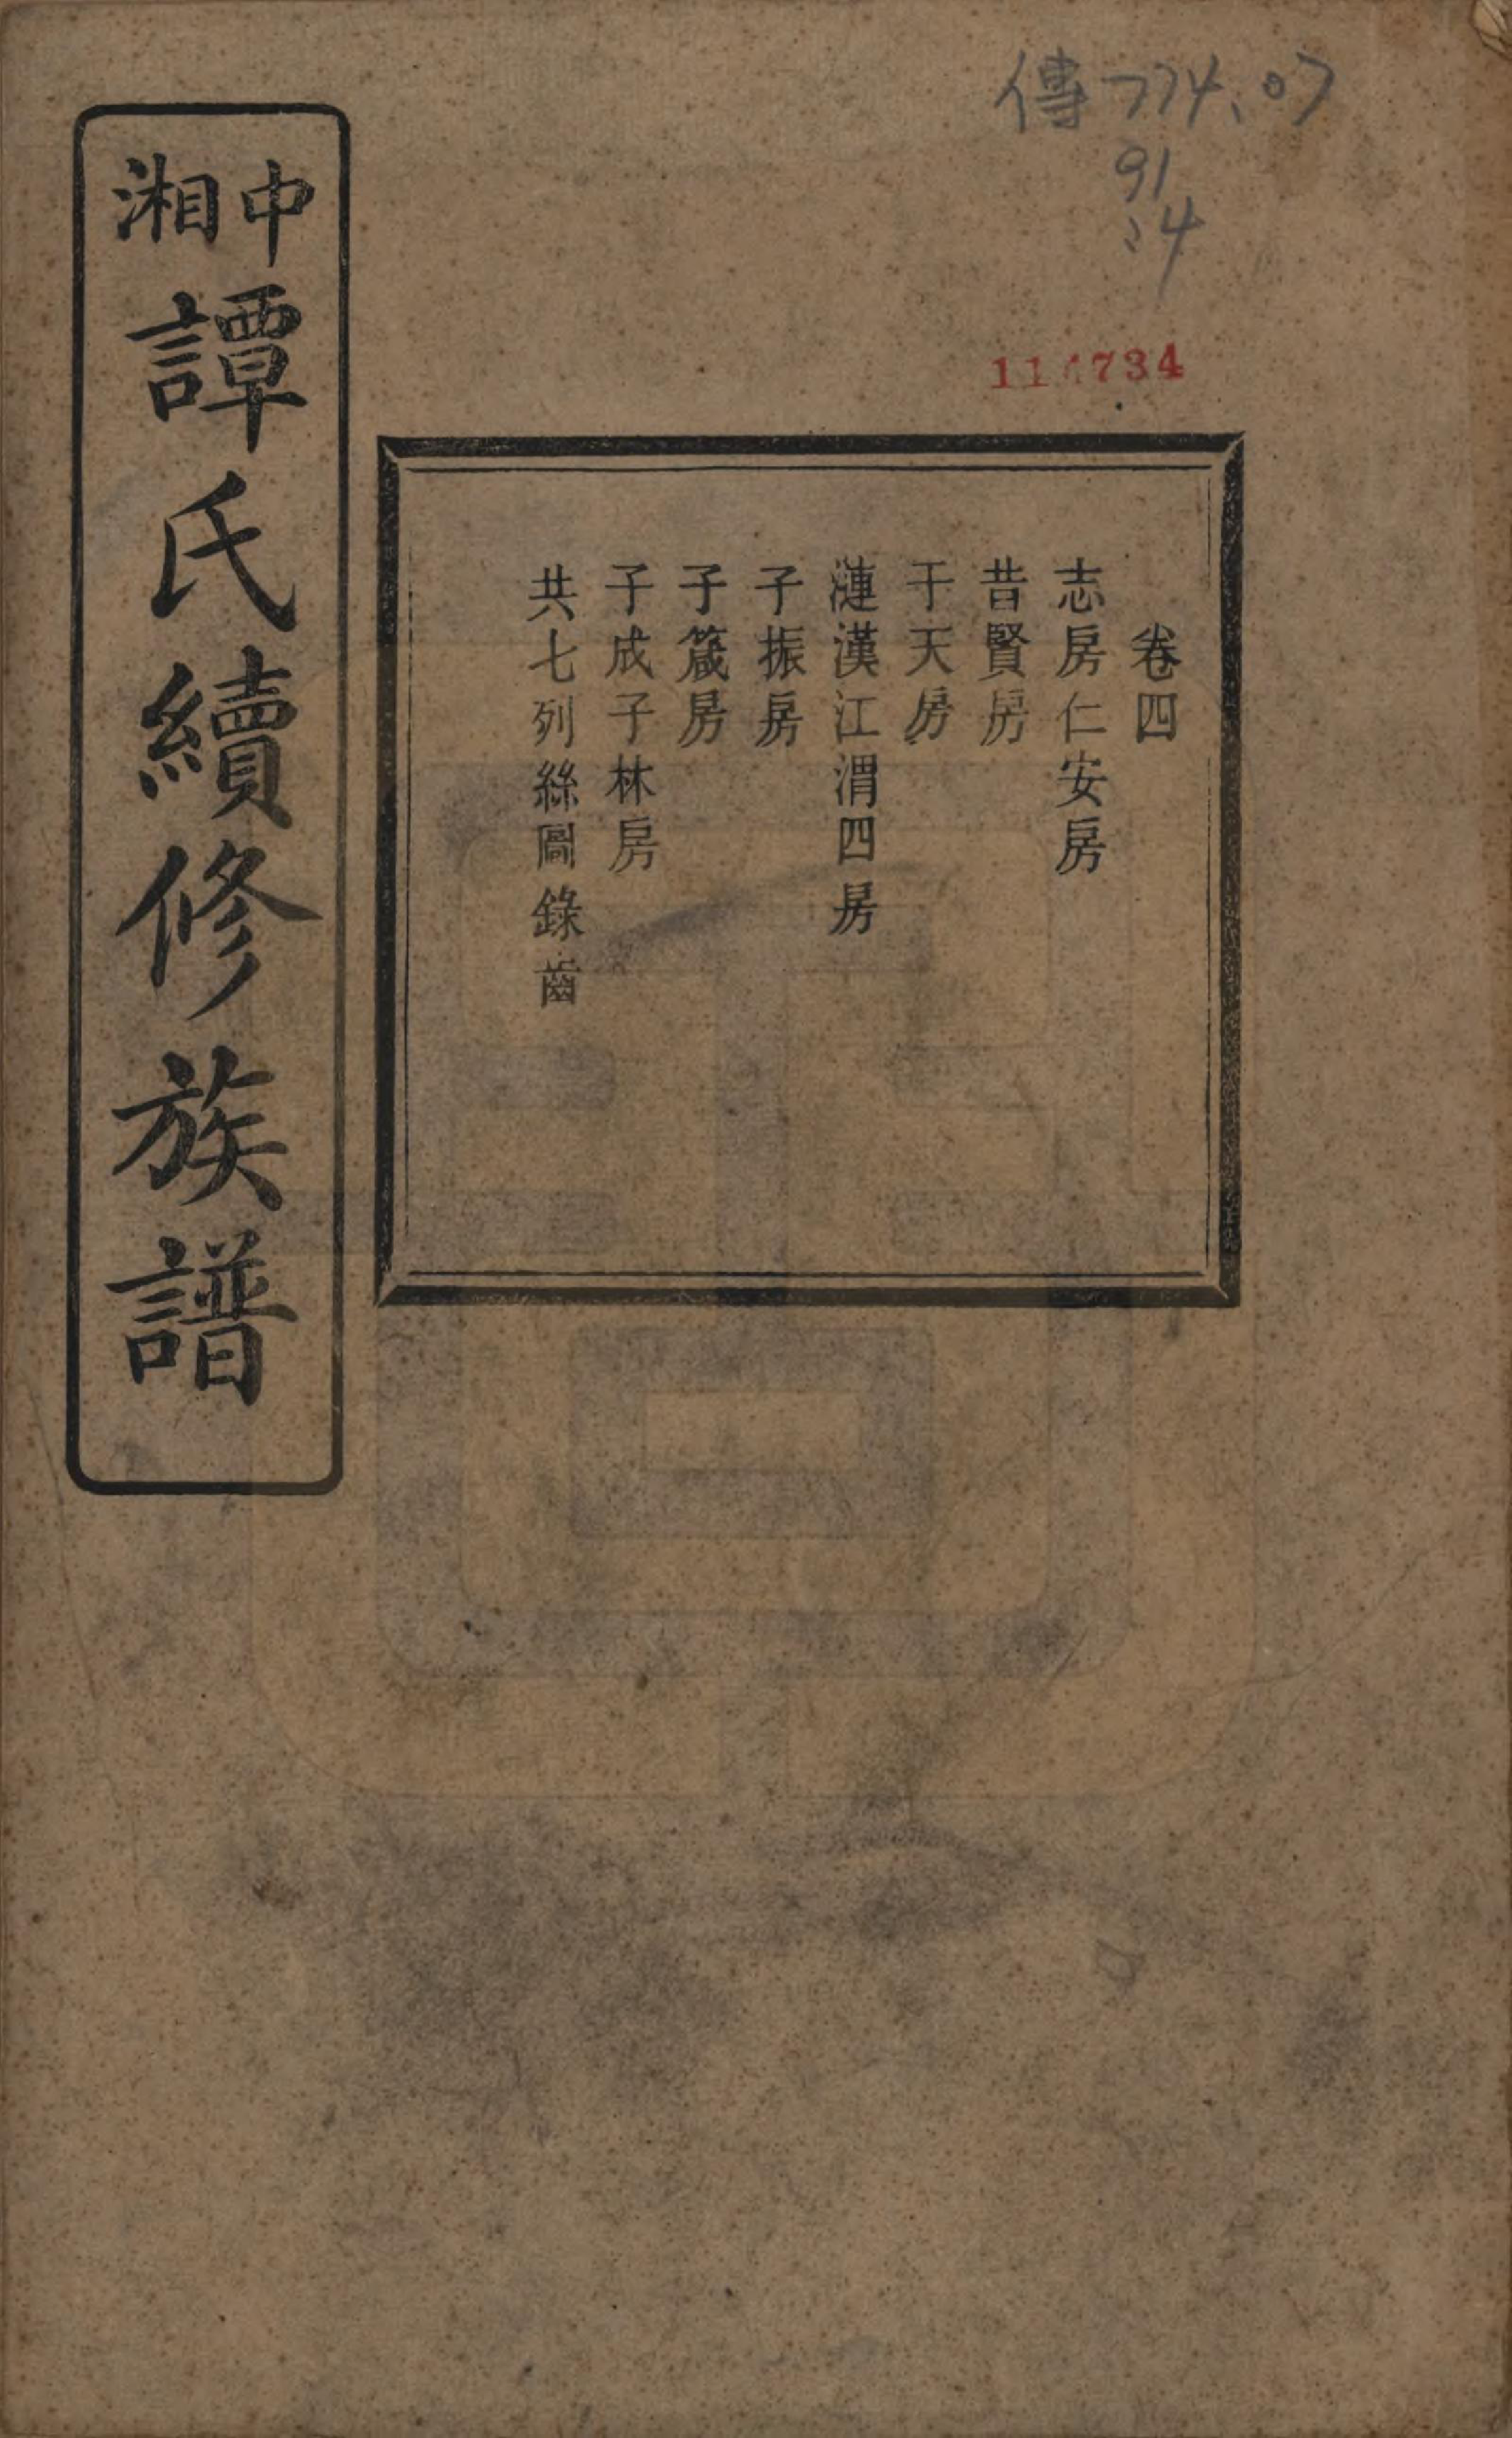 傳 774.07
91
:4
114734
卷四
志房仁安房
昔賢房
于天房
漣漢江渭四房
子振房
子箴房
子成子林房
共七列絲圖錄齒
中湘
譚氏續修族譜